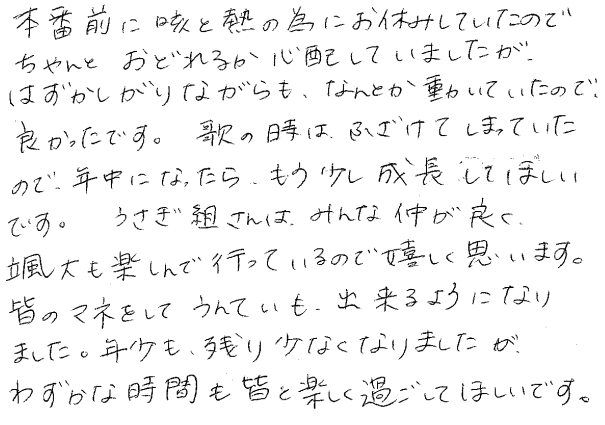 本番前に咳と熱の為にお休みしていたので
ちゃんと おどれるか心配していましたが、
はずかしがりながらも、なんとか動いていたので、
良かったです。 歌の時は、ふざけてしまっていた
ので、年中になったら、もう少し成長してほしい
です。 うさぎ組さんは、みんな仲が良く、
颯大も楽しんで行っているので嬉しく思います。
皆のマネをして うんていも、出来るようになり
ました。年少も、残り少なくなりましたが、
わずかな時間も皆と楽しく過ごしてほしいです。